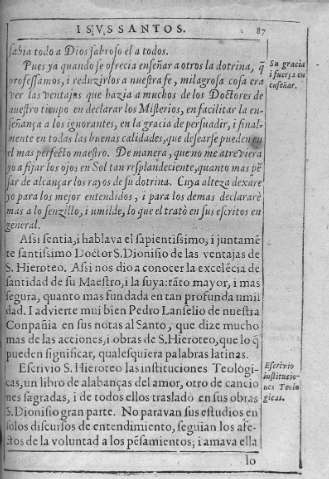 I SVS SANTOS. 87
sabia todo a Dios sabroso el a todos.
Pues ya quando se ofrecia enseñar a otros la dotrina, q̃
professamos, i reduzirlos a nuestra fe, milagrosa cosa era
ver las ventajas que hazia a muchos de los Doctores de
nuestro tiempo en declarar los Misterios, en facilitar la en-
señança a los ignorantes, en la gracia de persuadir, i final-
mente en todas las buenas calidades, que desearse pueden en
el mas perfecto maestro. De manera, que no me atreviera
yo a fijar los ojos en Sol tan resplandeciente, quanto mas pẽ
sar de alcançar los rayos de su dotrina. Cuya alteza dexare
yo para los mejor entendidos, i para los demas declararè
mas a lo senzillo, i umilde, lo que el tratò en sus escritos en
general.
Su gracia
i fuerça en
enseñar.
Assi sentia, i hablava el sapientissimo, i juntamẽ
te santissimo Doctor S. Dionisio de las ventajas de
S. Hieroteo. Assi nos dio a conocer la excelẽcia de
santidad de su Maestro, i la suya: tãto mayor, i mas
segura, quanto mas fundada en tan profunda umil
dad. I advierte mui bien Pedro Lanselio de nuestra
Conpañia en sus notas al Santo, que dize mucho
mas de las acciones, i obras de S. Hieroteo, que lo q̃
pueden significar, qualesquiera palabras latinas.
Escrivio S. Hieroteo las instituciones Teologi-
cas, un libro de alabanças del amor, otro de cancio
nes sagradas, i de todos ellos traslado en sus obras
S. Dionisio gran parte. No paravan sus estudios en
solos discursos de entendimiento, seguian los afe-
ctos de la voluntad a los pẽsamientos; i amava ella
Escrivio
instituciones
Teolo
gicas.
lo